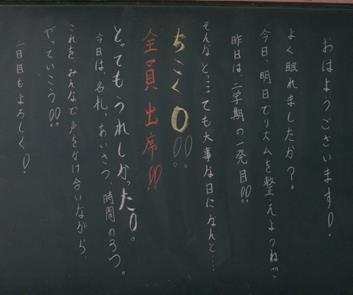 おはようございます!
よく眠れましたか?
今日、明日でリズムを整えようね!!
昨日は、二学期の一発目!!
そんなとってもとっても大事な日になんと…
ちこく0!!
全員出席!!
とってもうれしかった!!。
今日は、名札、あいさつ、時間の3つ。
これを、みんなで声をかけ合いながら
やっていこう!!
一日もよろしく!